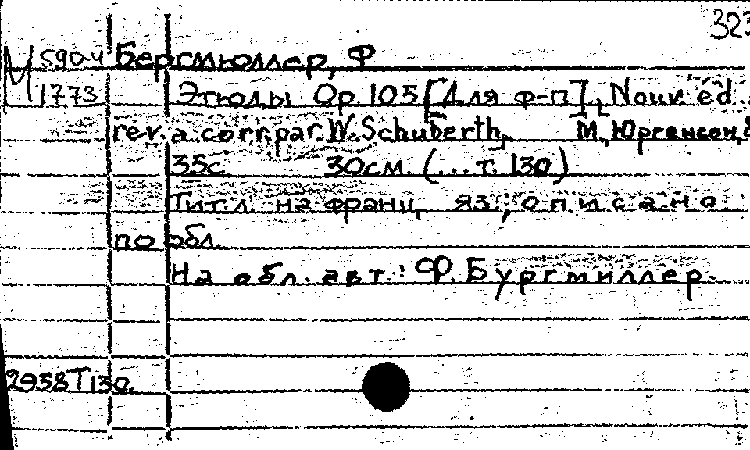 323
М 590-4 Бергмюллер, Ф
1773 Этюды Op. 105 [Для ф-п], Nouv. ed.
rev. a corr. par. W. Schuberth, М., Юргенсон,
35с 30см. (... т. 130)
Тит. л. на франц. яз., описано
по обл.
На обл. авт.: Ф. Бургмиллер.
2958 Т130.